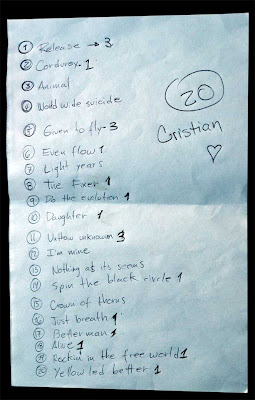 1 Release → 3
2 Corduroy - 1
3 Animal
4 World wide suicide
5 Given to fly - 3
6 Even flow 1
7 Light years
8 The Fixer 1
9 Do the evolution 1
10 Daughter 1
11 Unthow unknown 3
12 I'm mine
13 Nothing as its seems
14 Spin the black circle 1
15 Crown of thorns
16 Just breath 1
17 Betterman 1
18 Alive 1
19 Rockin' in the free world 1
20 Yellow led better 1
20
Cristian